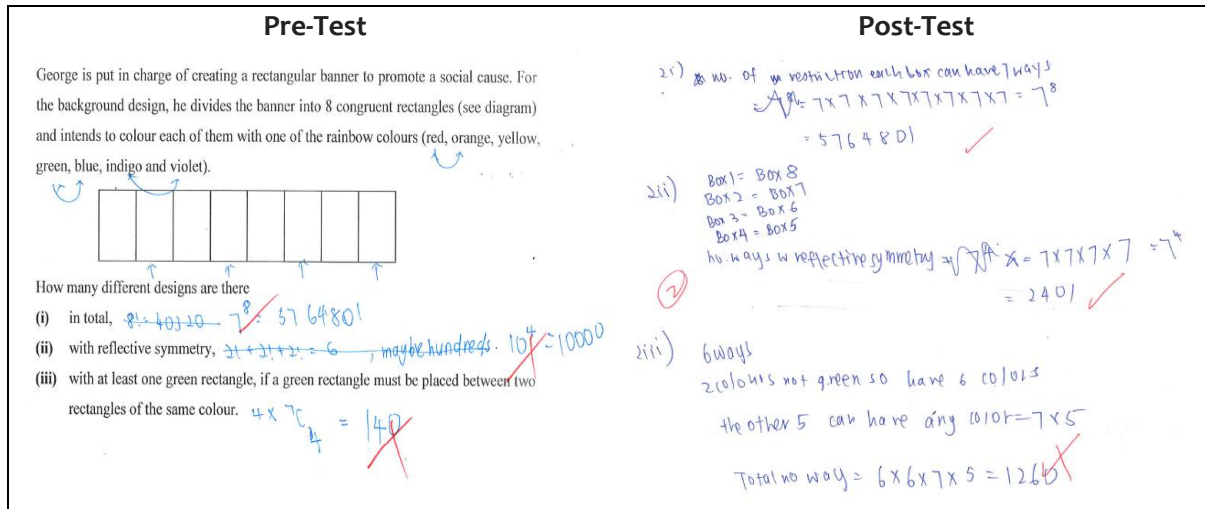 Pre-Test
George is put in charge of creating a rectangular banner to promote a social cause. For
the background design, he divides the banner into 8 congruent rectangles (see diagram)
and intends to colour each of them with one of the rainbow colours (red, orange, yellow,
green, blue, indigo and violet).
How many different designs are there
(i) in total, 8! = 40320 7^8 = 5764801
(ii) with reflective symmetry, 2! + 2! + 2! = 6 , maybe hundreds. 10^4 = 10000
(iii) with at least one green rectangle, if a green rectangle must be placed between two
rectangles of the same colour. 4 x 7C4 = 140
Post-Test
2i) no. of restriction each box can have 7 ways
= 7x7x7x7x7x7x7x7 = 7^8
= 5764801
2ii) Box1 = Box 8
Box 2 = Box 7
Box 3 = Box 6
Box 4 = Box 5
no. ways w reflective symmetry = 7x7x7x7 = 7^4
= 2401
2
2iii) 6 ways
2 colours not green so have 6 colors
the other 5 can have any color = 7x5
Total no way = 6x6x7x5 = 1260